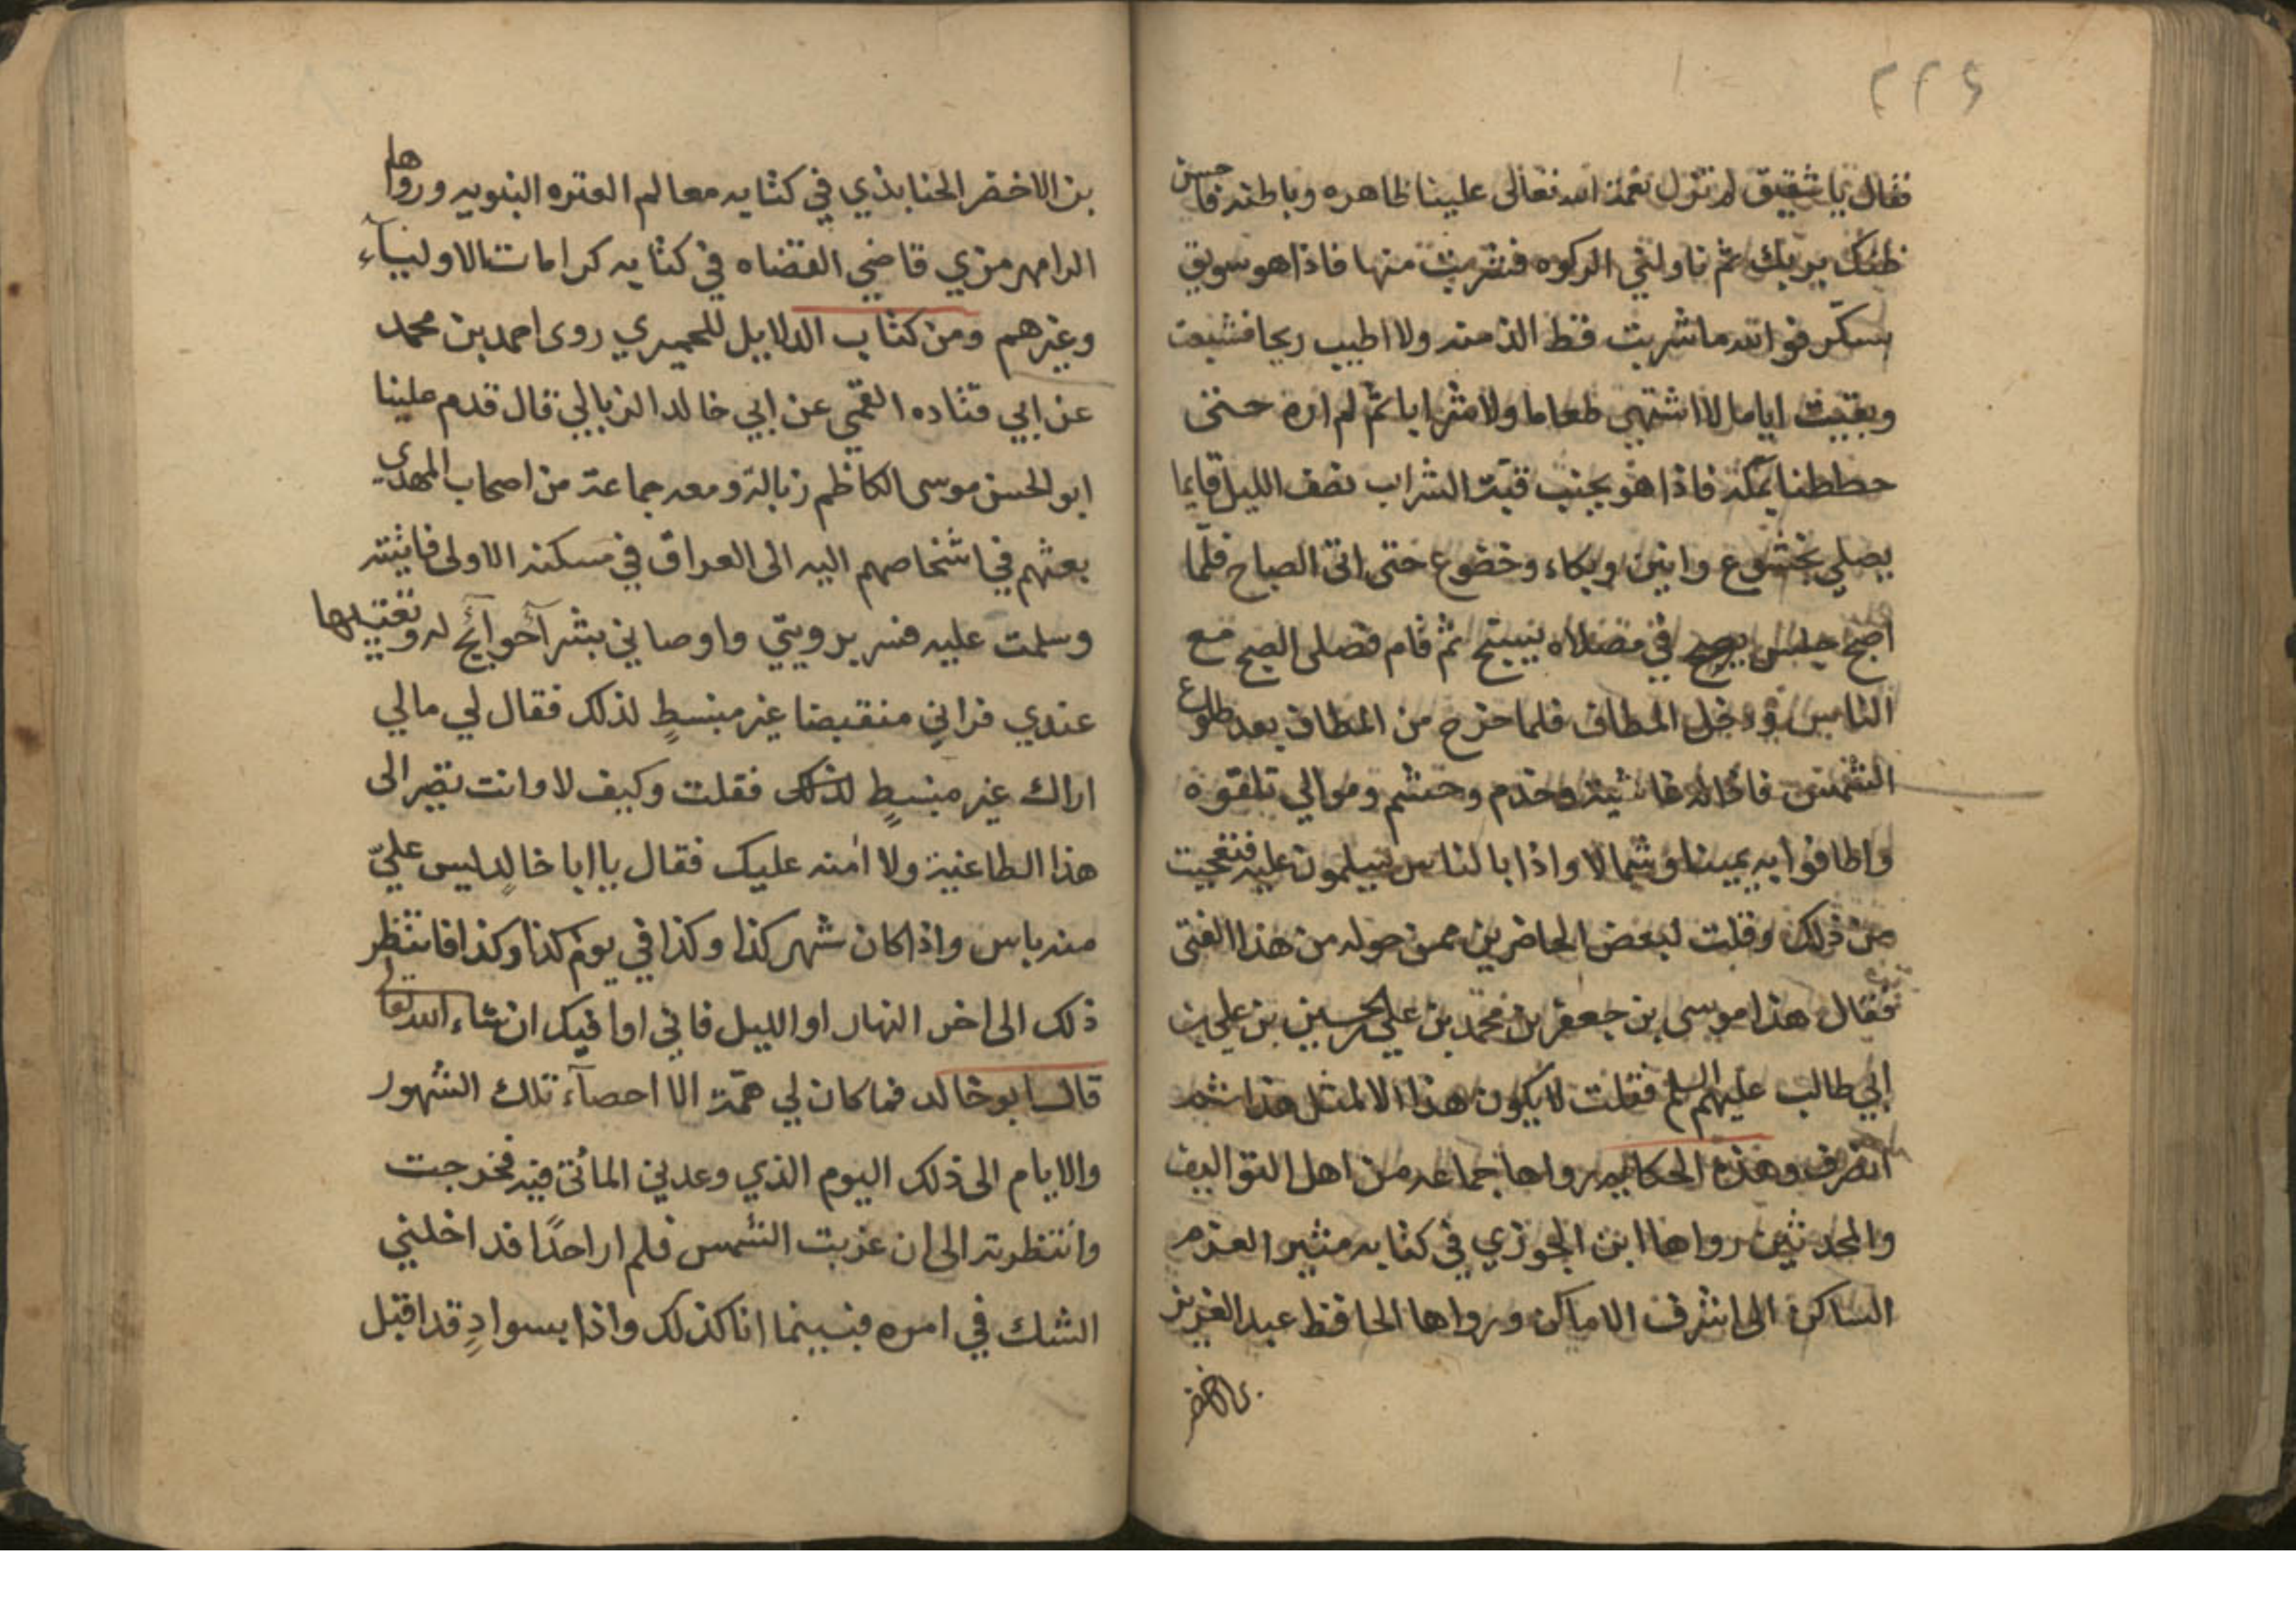 ٢٢٤
فقال يا شقيق لم تزل نعمة الله تعالى علينا ظاهره وباطنه فاحسن
ظنك بربك ثم ناولني الركوه فشربت منها فاذا هو سويق
بسكر فوالله ما شربت قط الذ منه ولا اطيب ريحا فشبعت
وبقيت اياما لا اشتهي طعاما ولا شرابا ثم لم اره حتى
حططنا بمكة فاذا هو بجنب قبة الشراب نصف الليل قايما
يصلي بخشوع وانين وبكاء وخضوع حتى اتى الصباح فلما
اصبح جلس في مصلاه يسبح ثم قام فصلى الصبح مع
الناس ودخل المطاف فلما خرج من المطاف بعد طلوع
الشمس فاذا له غاشية وخدم وحشم وموالي تلقوه
واطافوا به يمينا وشمالا واذا بالناس يسلمون عليه فتعجبت
من ذلك وقلت لبعض الحاضرين ممن حوله من هذا الفتى
فقال هذا موسى بن جعفر بن محمد بن علي الحسين بن علي بن
ابي طالب عليهم السلم فقلت لا يكون هذا الا لمثل هذا
انصرف وهذه الحكايه رواها جماعه من اهل التواليف
والمحدثين رواها ابن الجوزي في كتابه مثير العزم
الساكن الى اشرف الاماكن ورواها الحافظ عبد العزيز
بن الاخضر
بن الاخضر الجنابذي في كتابه معالم العتره النبويه ورواها
الرامهرمزي قاضي القضاه في كتابه كرامات الاوليآء
وغيرهم ومن كتاب الدلايل للحميري روى احمد بن محمد
عن ابي قتاده القمي عن ابي خالد الزبالي قال قدم علينا
ابو الحسن موسى الكاظم زبالة ومعه جماعة من اصحاب المهدي
بعثهم في اشخاصهم اليه الى العراق في مسكنه الاولى فاتيته
وسلمت عليه فسر برويتي واوصاني بشرآ حوآئج له وتعتيبها
عندي فراني منقبضا غير منبسطٍ لذلك فقال لي مالي
اراك غير منبسطٍ لذلك فقلت وكيف لا وانت تصير الى
هذا الطاغية ولا امنه عليك فقال يا ابا خالد ليس عليّ
منه باس واذا كان شهر كذا وكذا في يوم كذا وكذا فانتظر
ذلك الى اخر النهار او الليل فاني اوافيك ان شاء الله تعا
قال ابو خالد فما كان لي همّة الا احصآء تلك الشهور
والايام الى ذلك اليوم الذي وعدني الماتى فيه فخرجت
وانتظرته الى ان غربت الشمس فلم ار احدًا فداخلني
الشك في امره فبينما انا كذلك واذا بسوادٍ قد اقبل